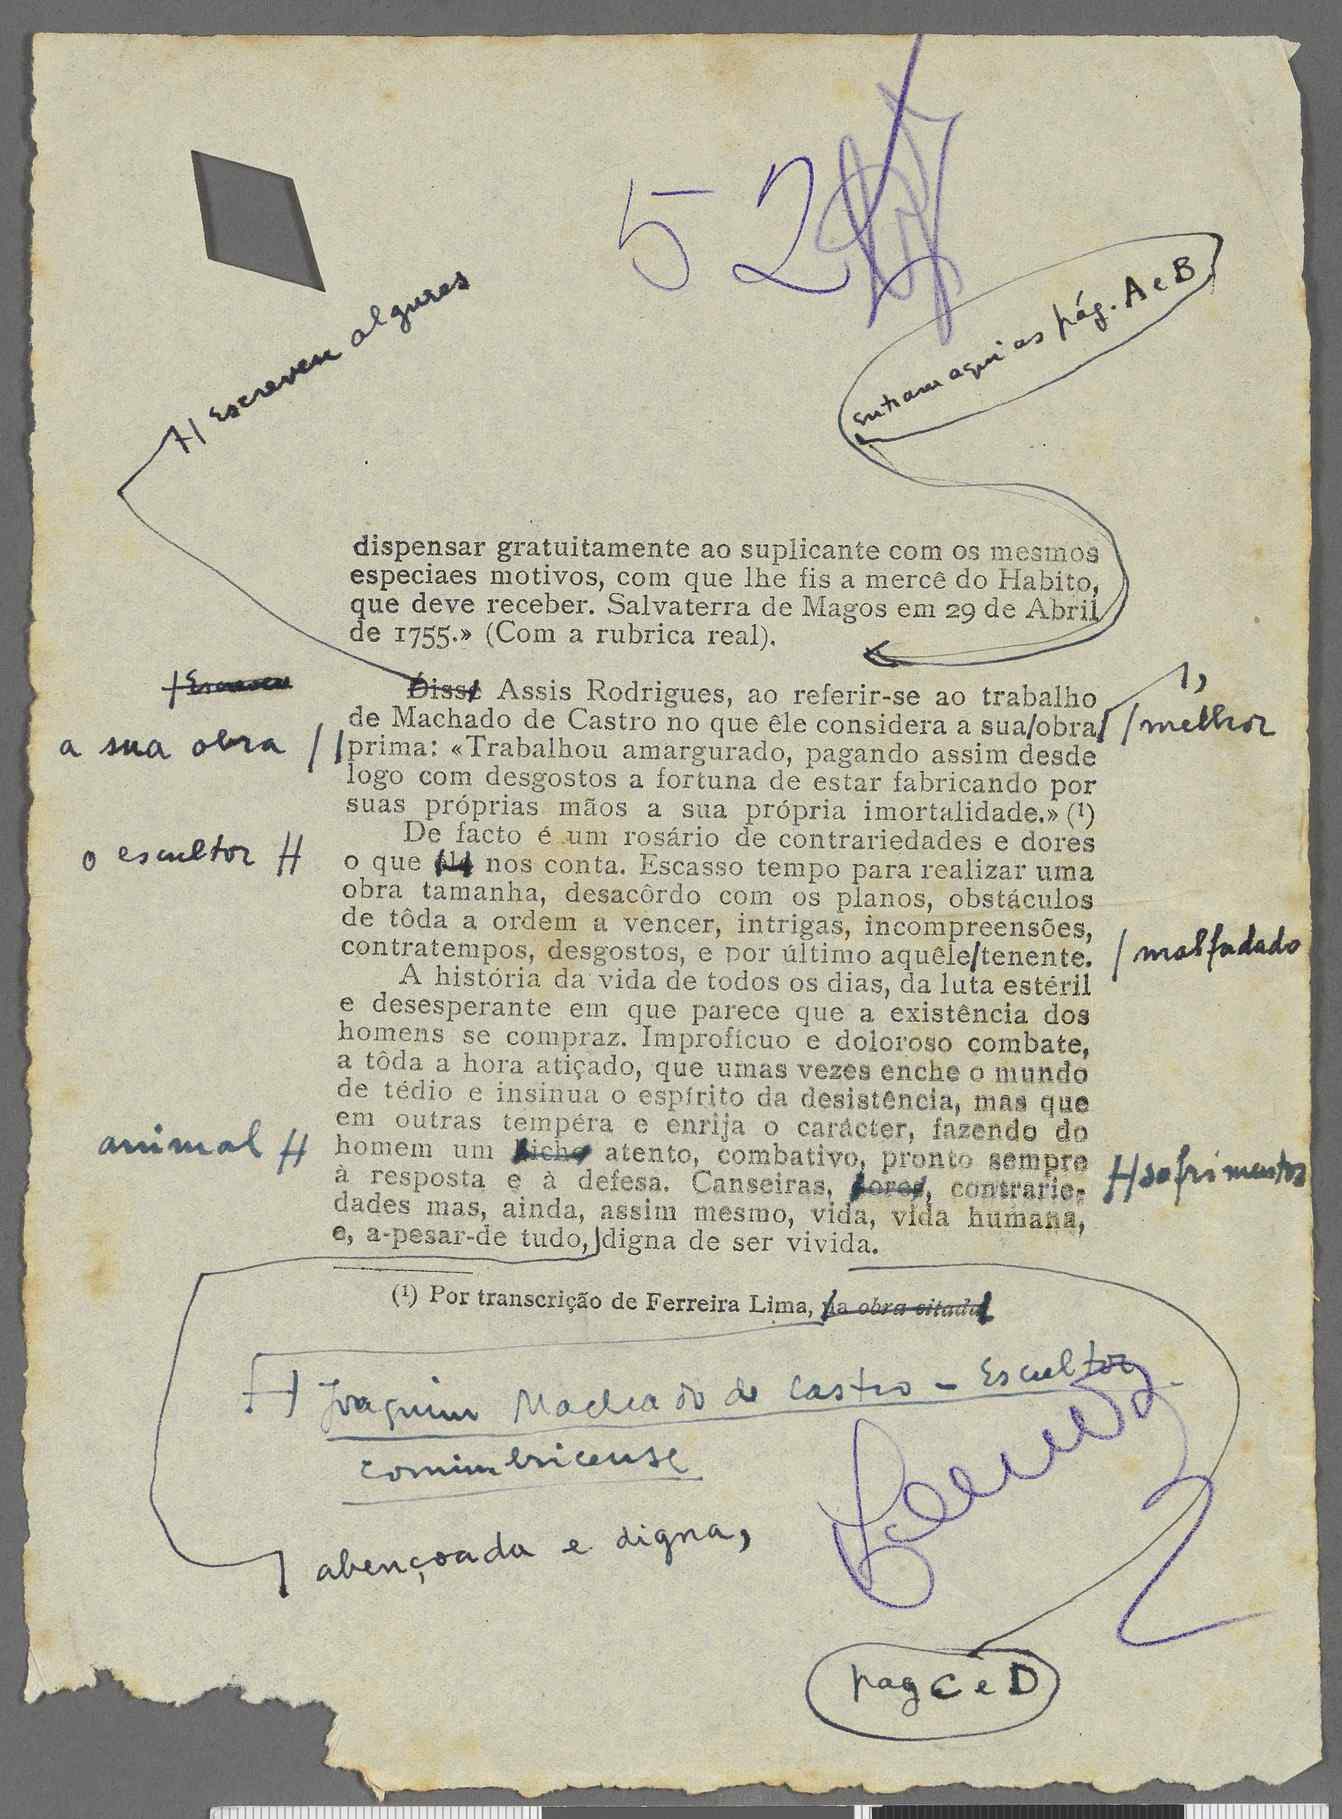 52
H Escreveu algures
entram aqui as pág. A e B
dispensar gratuitamente ao suplicante com os mesmos
especiaes motivos, com que lhe fis a mercê do Habito,
que deve receber. Salvaterra de Magos em 29 de Abril
de 1755.» (Com a rubrica real).
Disse Assis Rodrigues, ao referir-se ao trabalho
de Machado de Castro no que êle considera a sua/obra/ / melhor
a sua obra / / prima: «Trabalhou amargurado, pagando assim desde
logo com desgostos a fortuna de estar fabricando por
suas próprias mãos a sua própria imortalidade.» (¹)
De facto é um rosário de contrariedades e dores
o escultor H o que êle nos conta. Escasso tempo para realizar uma
obra tamanha, desacôrdo com os planos, obstáculos
de tôda a ordem a vencer, intrigas, incompreensões,
contratempos, desgostos, e por último aquêle/tenente. / malfadado
A história da vida de todos os dias, da luta estéril
e desesperante em que parece que a existência dos
homens se compraz. Improfícuo e doloroso combate,
a tôda a hora atiçado, que umas vezes enche o mundo
de tédio e insinua o espírito da desistência, mas que
em outras tempéra e enrija o carácter, fazendo do
animal H homem um bicho atento, combativo, pronto sempre
à resposta e à defesa. Canseiras, dores, contrarie- H sofrimentos
dades mas, ainda, assim mesmo, vida, vida humana,
e, a-pesar-de tudo, digna de ser vivida.
(¹) Por transcrição de Ferreira Lima, na obra citada
H Joaquim Machado de Castro – Escultor
conimbricense
abençoada e digna,
pag C e D